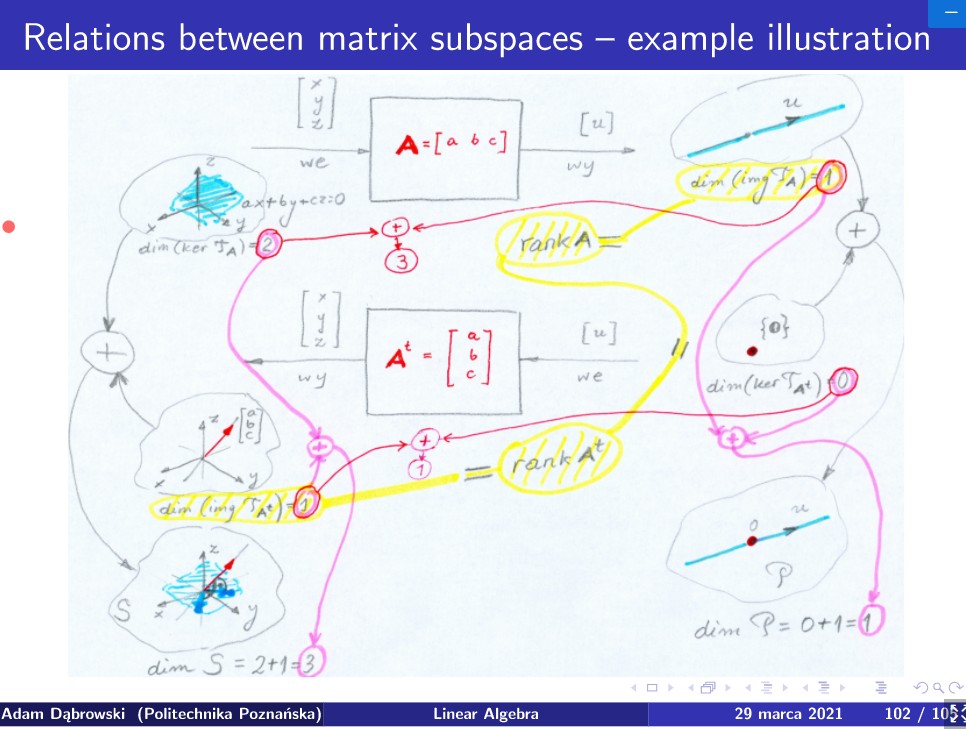 Relations between matrix subspaces – example illustration
[x y z]
we
A = [a b c]
[u]
wy
u
dim (img 𝒯A) = 1
z
x
y
ax+by+cz=0
dim (ker 𝒯A) = 2
+
3
rank A =
+
[x y z]
wy
Aᵗ = [a b c]
[u]
we
=
{0}
dim (ker 𝒯Aᵗ) = 0
+
z
[a b c]
x
y
+
+
1
+
dim (img 𝒯Aᵗ) = 1
= rank Aᵗ
z
x
y
S
0
u
𝒫
dim 𝒫 = 0+1=1
dim S = 2+1=3
Adam Dąbrowski (Politechnika Poznańska)
Linear Algebra
29 marca 2021
102 / 10